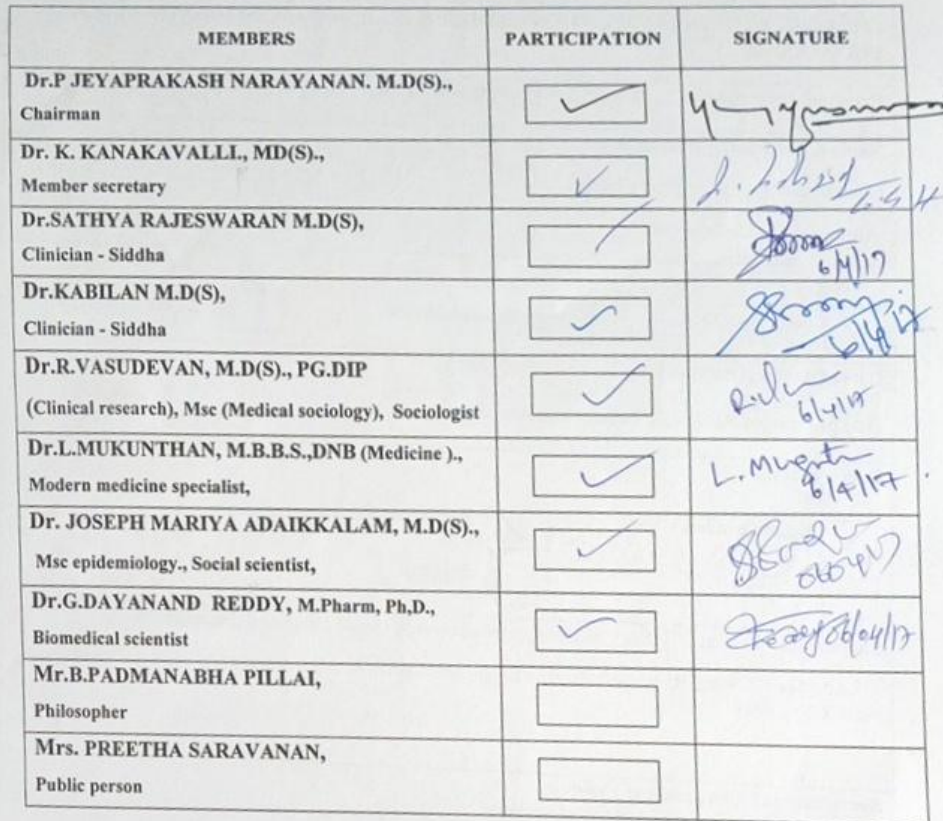 MEMBERS PARTICIPATION SIGNATURE
Dr.P JEYAPRAKASH NARAYANAN. M.D(S).,
Chairman
Dr. K. KANAKAVALLI., MD(S).,
Member secretary
Dr.SATHYA RAJESWARAN M.D(S),
Clinician - Siddha
6/4/17
Dr.KABILAN M.D(S),
Clinician - Siddha
6/4/17
Dr.R.VASUDEVAN, M.D(S)., PG.DIP
(Clinical research), Msc (Medical sociology), Sociologist
6/4/17
Dr.L.MUKUNTHAN, M.B.B.S.,DNB (Medicine ).,
L.
Modern medicine specialist,
6/4/17
Dr. JOSEPH MARIYA ADAIKKALAM, M.D(S).,
Msc epidemiology., Social scientist,
Dr.G.DAYANAND REDDY, M.Pharm, Ph,D.,
Biomedical scientist
06/04/17
Mr.B.PADMANABHA PILLAI,
Philosopher
Mrs. PREETHA SARAVANAN,
Public person